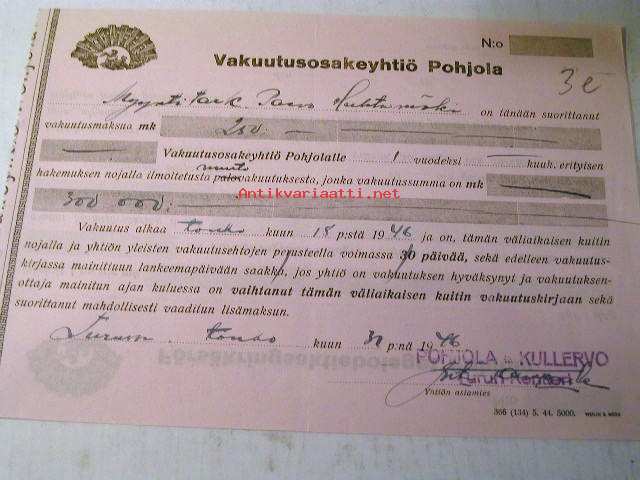 N:o
Vakuutusosakeyhtiö Pohjola
3 e
Myynti tark. Paavo Huhtamäki on tänään suorittanut
vakuutusmaksua mk 250. —
Vakuutusosakeyhtiö Pohjolalle 1 vuodeksi kuuk. erityisen
muuto
hakemuksen nojalla ilmoitetusta palovakuutuksesta, jonka vakuutussumma on mk
Antikvariaatti.net
300 000:
Vakuutus alkaa touko kuun 18 p:stä 1946 ja on, tämän väliaikaisen kuitin
nojalla ja yhtiön yleisten vakuutusehtojen perusteella voimassa 30 päivää, sekä edelleen vakuutus-
kirjassa mainittuun lankeemapäivään saakka, jos yhtiö on vakuutuksen hyväksynyt ja vakuutuksen-
ottaja mainitun ajan kuluessa on vaihtanut tämän väliaikaisen kuitin vakuutuskirjaan sekä
suorittanut mahdollisesti vaaditun lisämaksun.
Turun touko kuun 30 p:nä 1946
POHJOLA KULLERVO
Turun Konttori
Yhtiön asiamies
366 (134) 5. 44. 5000. WEILIN & GÖÖS